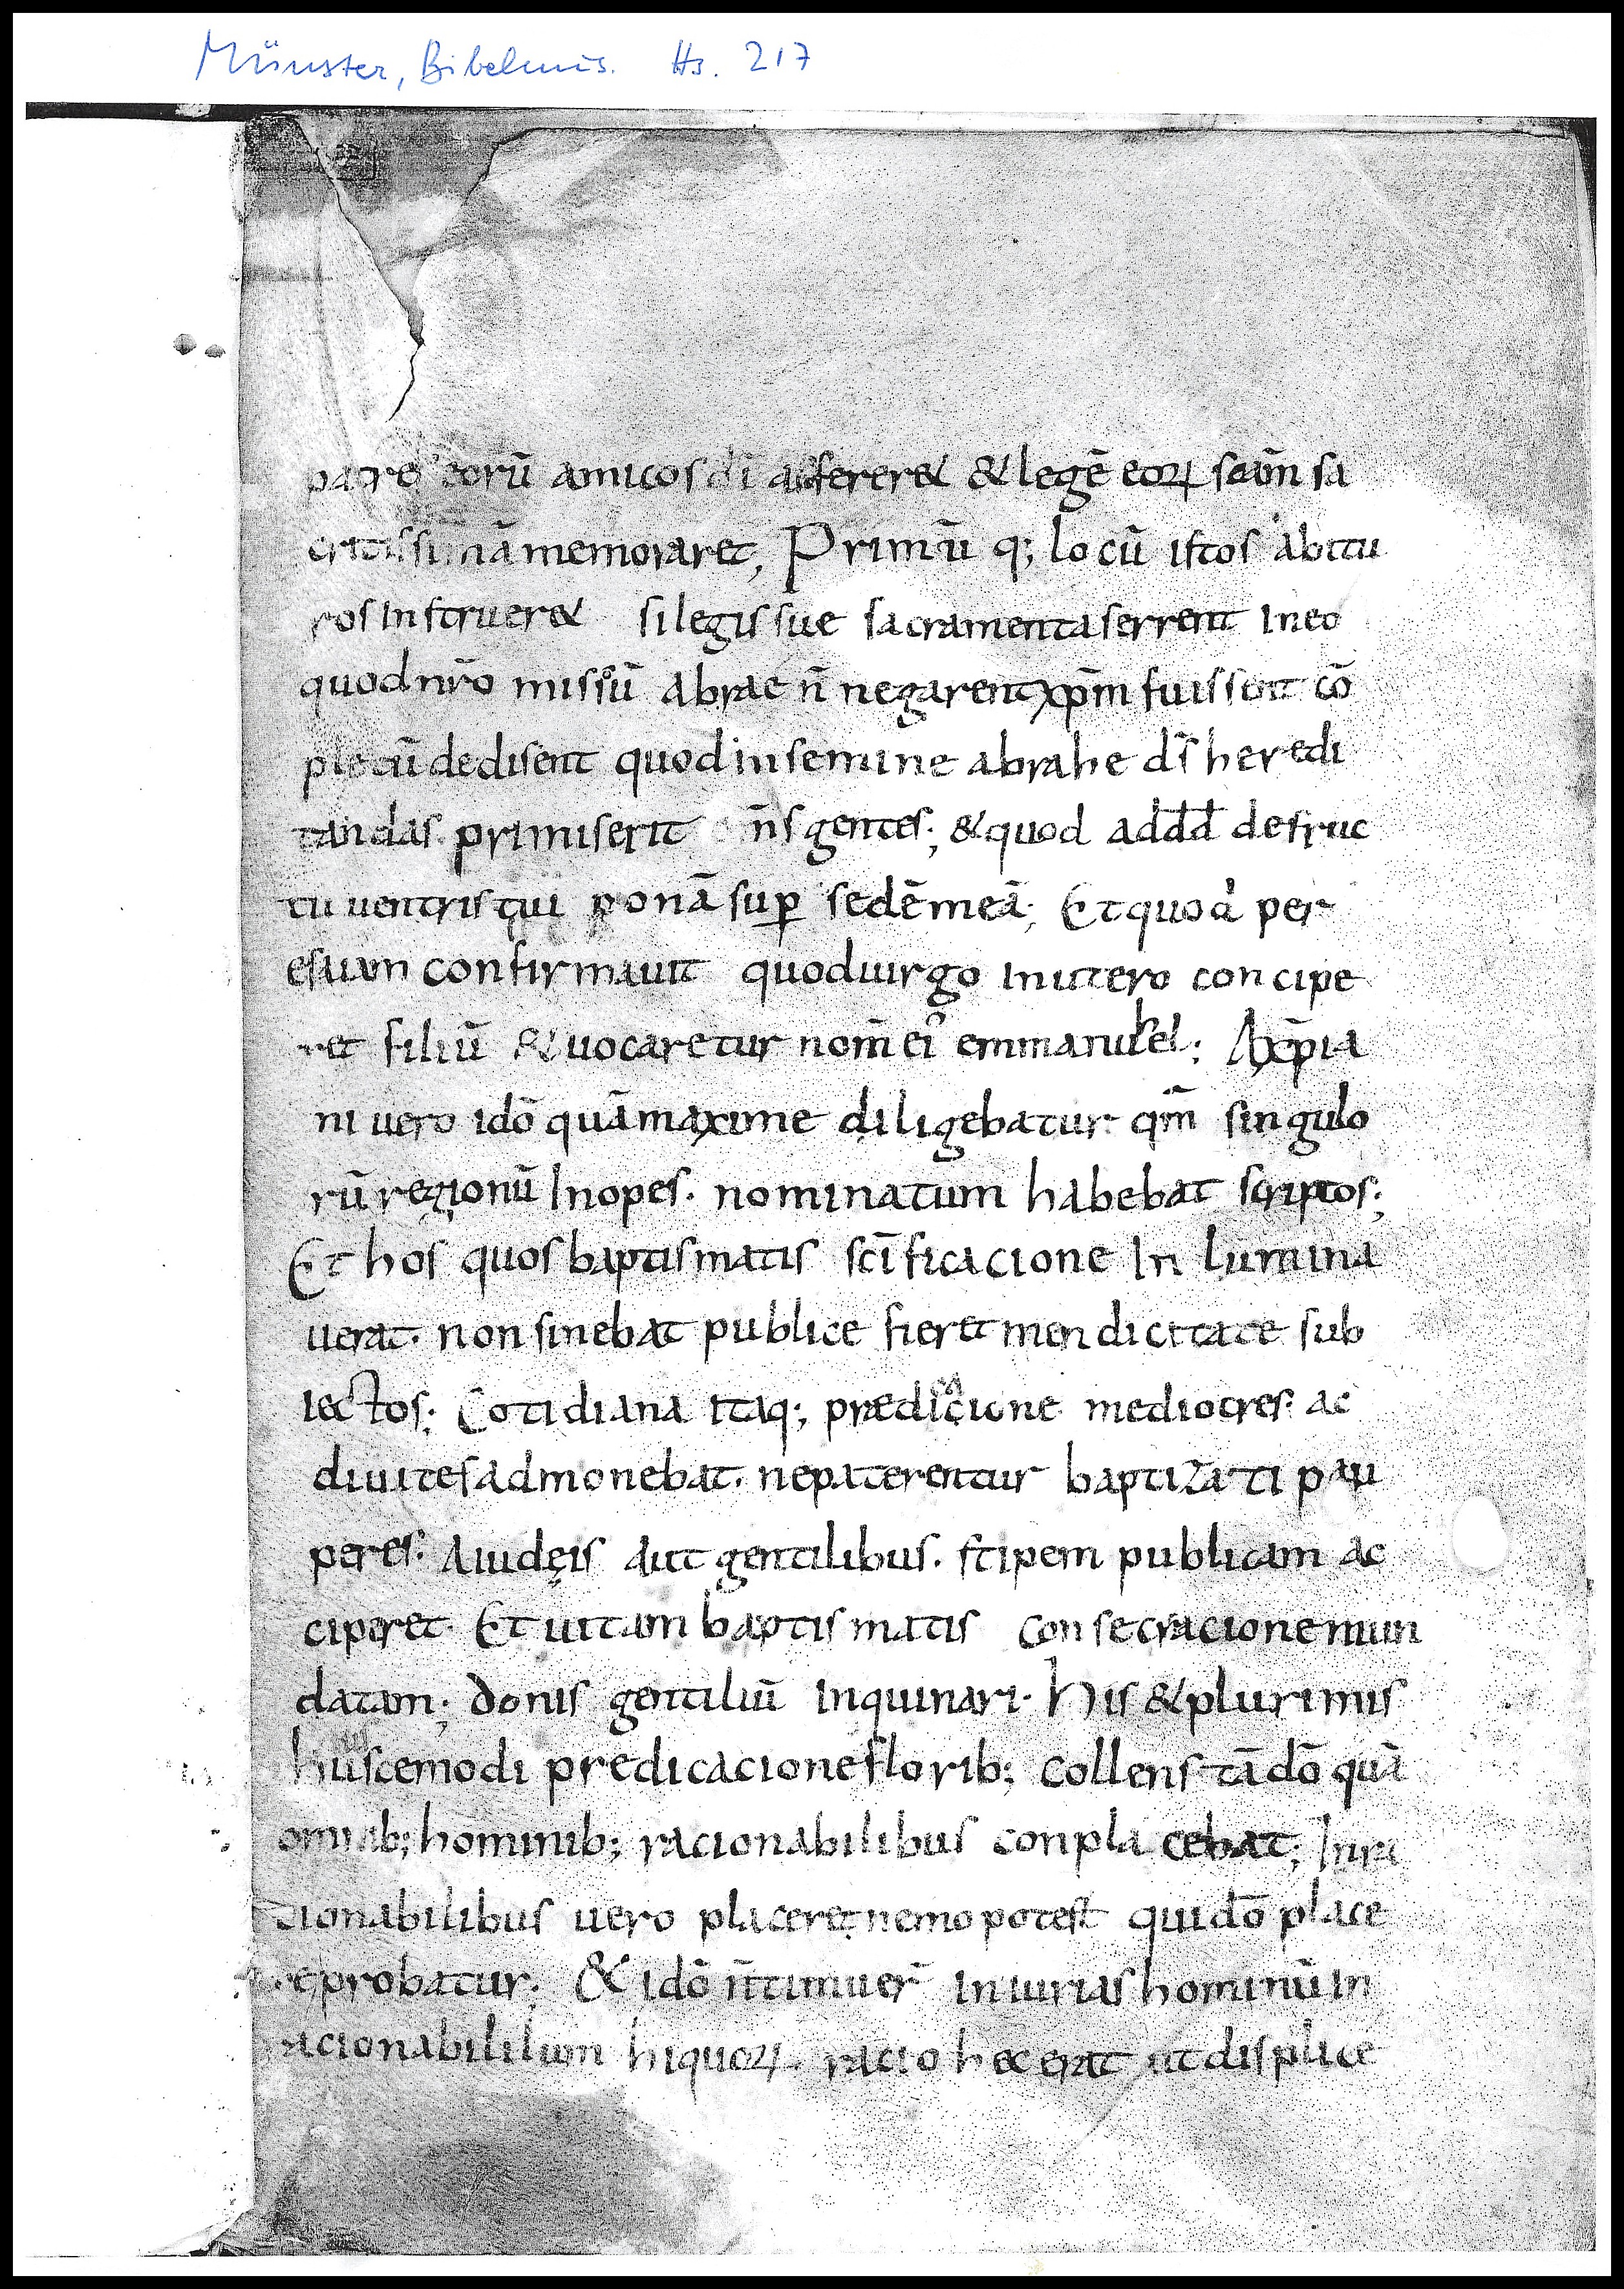 Münster, Bibelmus. Hs. 217
patres eorū amicos dī adsereret & legē eoꝝ scām sa
cratissimā memoraret, Primū q; locū istos abitu
ros instrueret si legis sue sacramenta serrent in eo
quod nr̄o missū abrae n̄ negarent xp̄m fuissent cō
pletū dedisent quod in semine abrahe d̄s heredi
tandas primiserit n̄s gentes; & quod ad dd̄ de fruc
tu uentris tui ponā sup̱ sedē meā; Et quod per
esuam confirmauit quod uirgo in utero concipe
ret filiū & uocaretur nom̄ ei emmanuhel; A xp̄ia
ni uero idō quā maxime diligebatur qm̄ singulo
rū regionū inopes. nominatum habebat scriptos;
Et hos quos baptismatis scīficacione in lumina
uerat. non sinebat publice fieret mendicitate sub
iectos; Cotidiana itaq; prædicacione mediocres. ac
diuites admonebat. ne paterentur baptizati pau
peres. A iudęis aut gentilibus. stipem publicam ac
ciperet. Et uitam baptismatis consecracione mun
datam; donis gentiliū inquinari. His & plurimis
huscemodi predicacione florib; collens tā dō quā
omnib; hominib; racionabilibus conplacebat; Inra
cionabilibus uero placeret nemo potest qui dō place
re probatur; & idō n̄ timuer̄ iniurias hominū in
racionabililium hi quoꝝ. racio hec erat ut displice